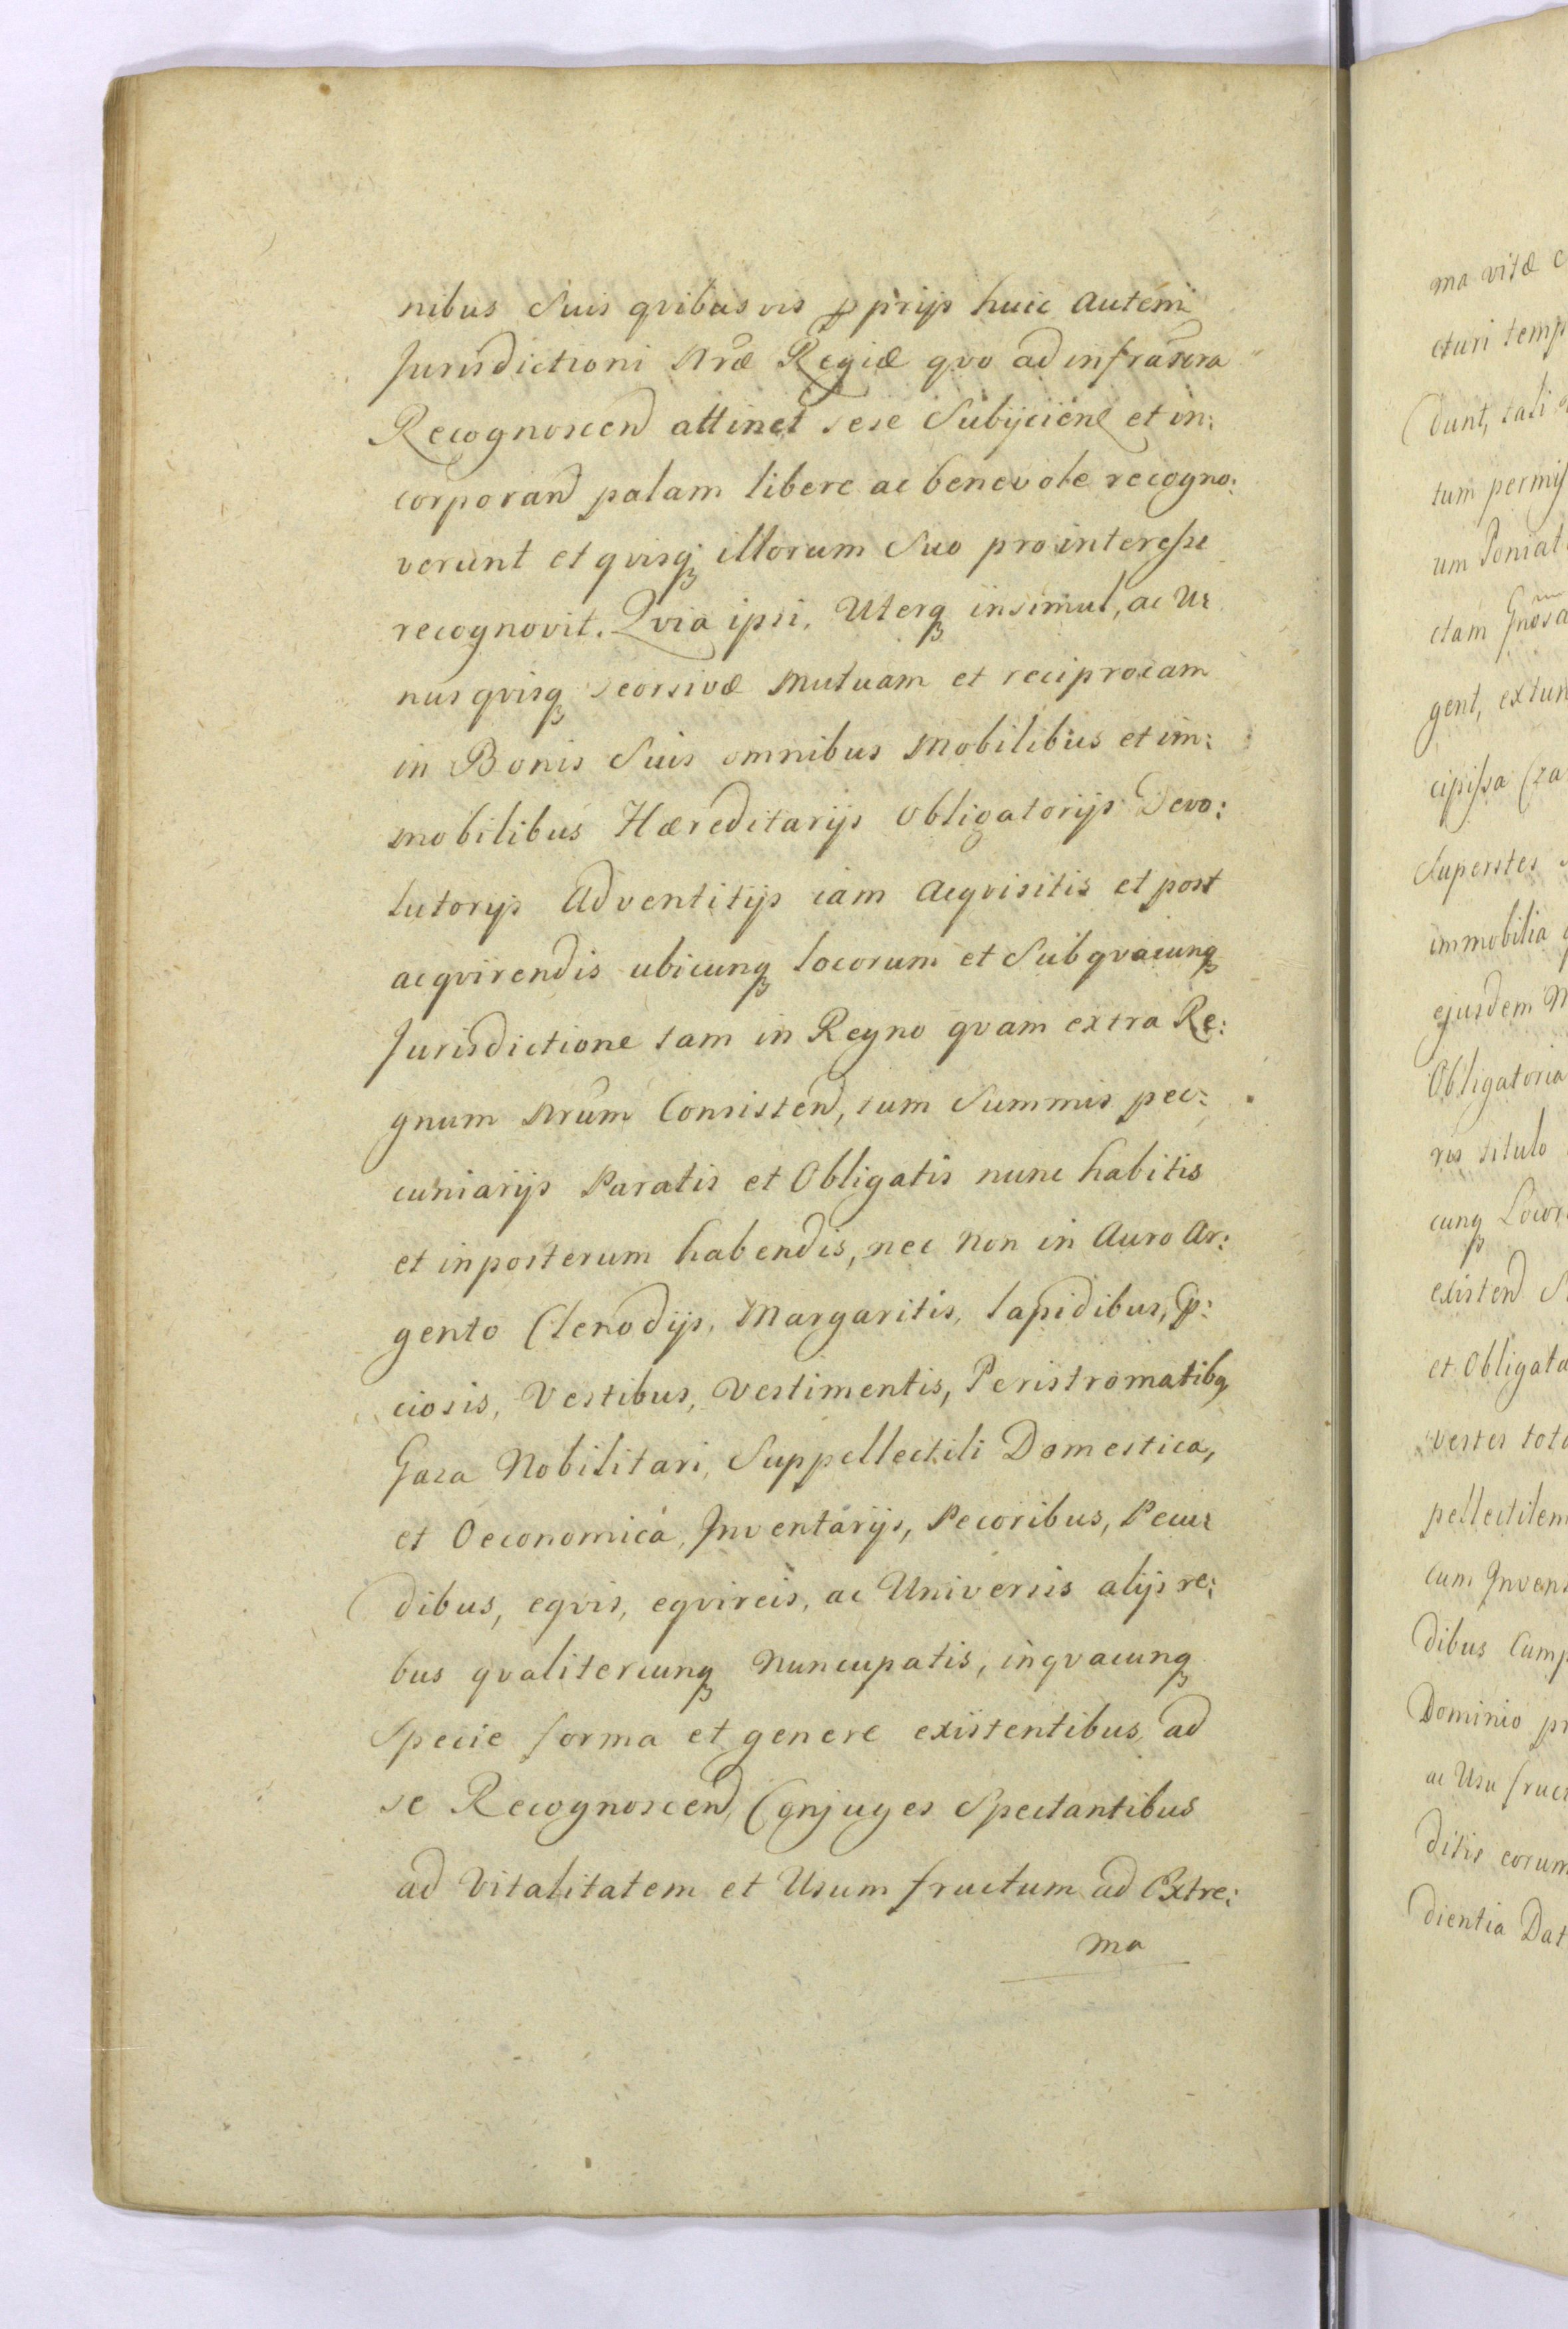 nibus Suis qvibusvis pprijs huic autem
Jurisdictioni Nræ Regiæ qvo ad infrascra
Recognoscend attinet sese Subijcien et in:
corporand palam libere ac benevole recogno:
verunt et qvisq illorum Suo pro interesse
recognovit. Qvia ipsi, Uterq insimul, ac U:
nusqvisq seorsivæ Mutuam et reciprocam
in Bonis Suis omnibus Mobilibus et im:
mobilibus Hæreditarijs Obligatorijs Devo:
lutorijs Adventitijs iam Acqvisitis et post
acqvirendis ubicunq locorum et Subqvacunq
Jurisdictione tam in Regno qvam extra Re:
gnum Nrum Consistend, tum Summis pec:
cuniarijs Paratis et Obligatis nunc habitis
et inposterum habendis, nec Non in Auro Ar:
gento Clenodijs, Margaritis, lapidibus, p:
ciosis, Vestibus, Vestimentis, Peristromatibq
Gaza Nobilitari, Suppellectili Domestica,
et Oeconomica, Inventarijs, Pecoribus, Pecu:
dibus, eqvis, eqvireis, ac Universis alijs re:
bus qvalitercunq Nuncupatis, inqvacunq
Specie forma et genere existentibus, ad
se Recognoscend, Conjuges Spectantibus
ad Vitalitatem et Usum fructum ad Extre:
ma
ma vitæ
cturi temp
dunt, tali
tum permis
um Poniat
ctam Gnosa
gent, extun
cipissa Cza
Superstes
immobilia
ejusdem M
Obligatoria
ris titulo
cunq Locor
existend S
et Obligata
vestes tota
pellectilem
cum Invent
dibus Cump
Dominio pr
ac Usu fruc
ditis eorum
dientia Dat